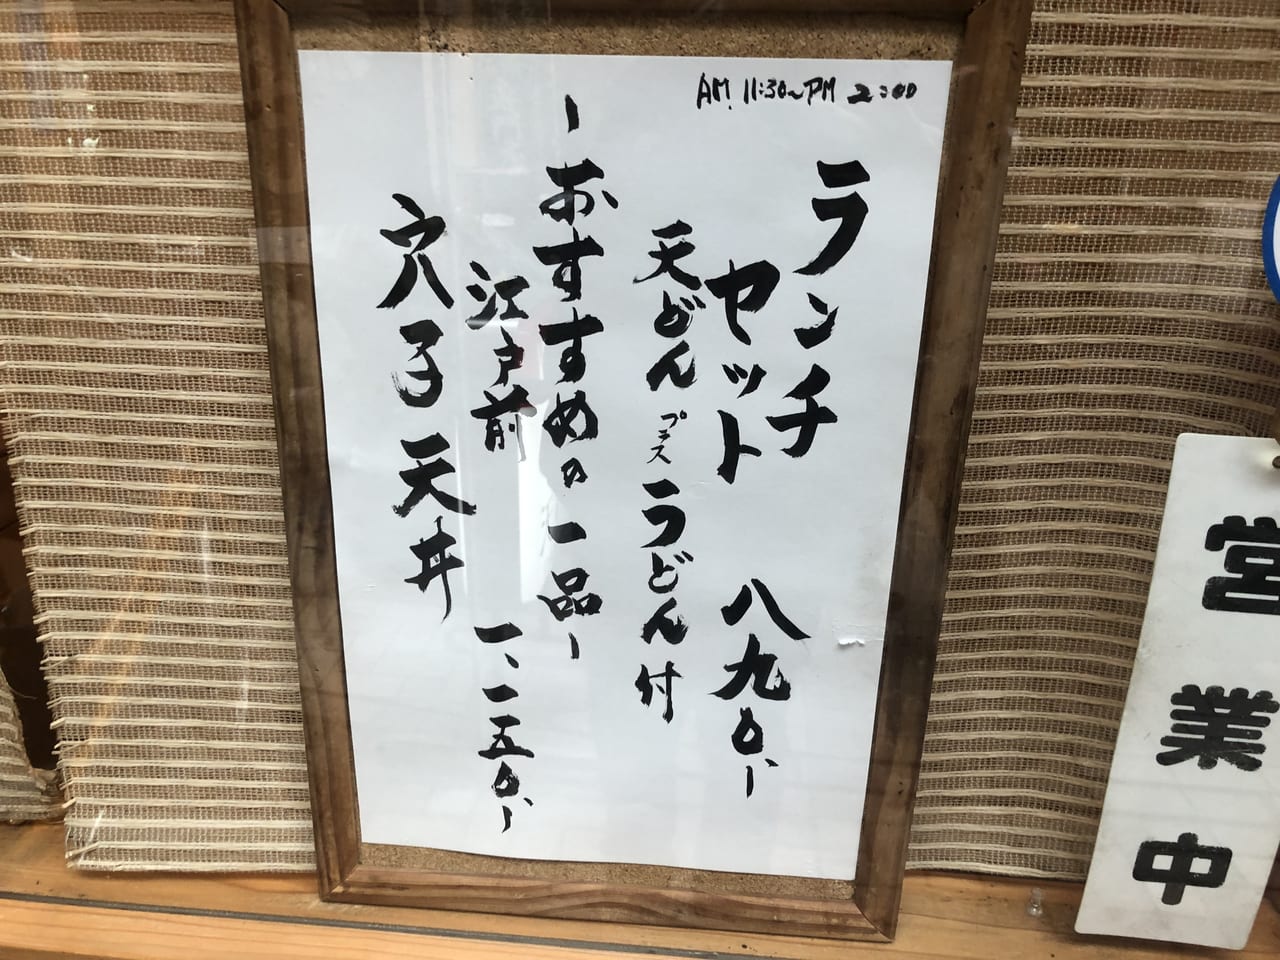 AM. 11:30~PM 2:00
ランチ
セット 八九〇、ー
天どんプラスうどん付
ーおすすめの一品ー
江戸前 一、一五〇、ー
穴子天丼
営業中